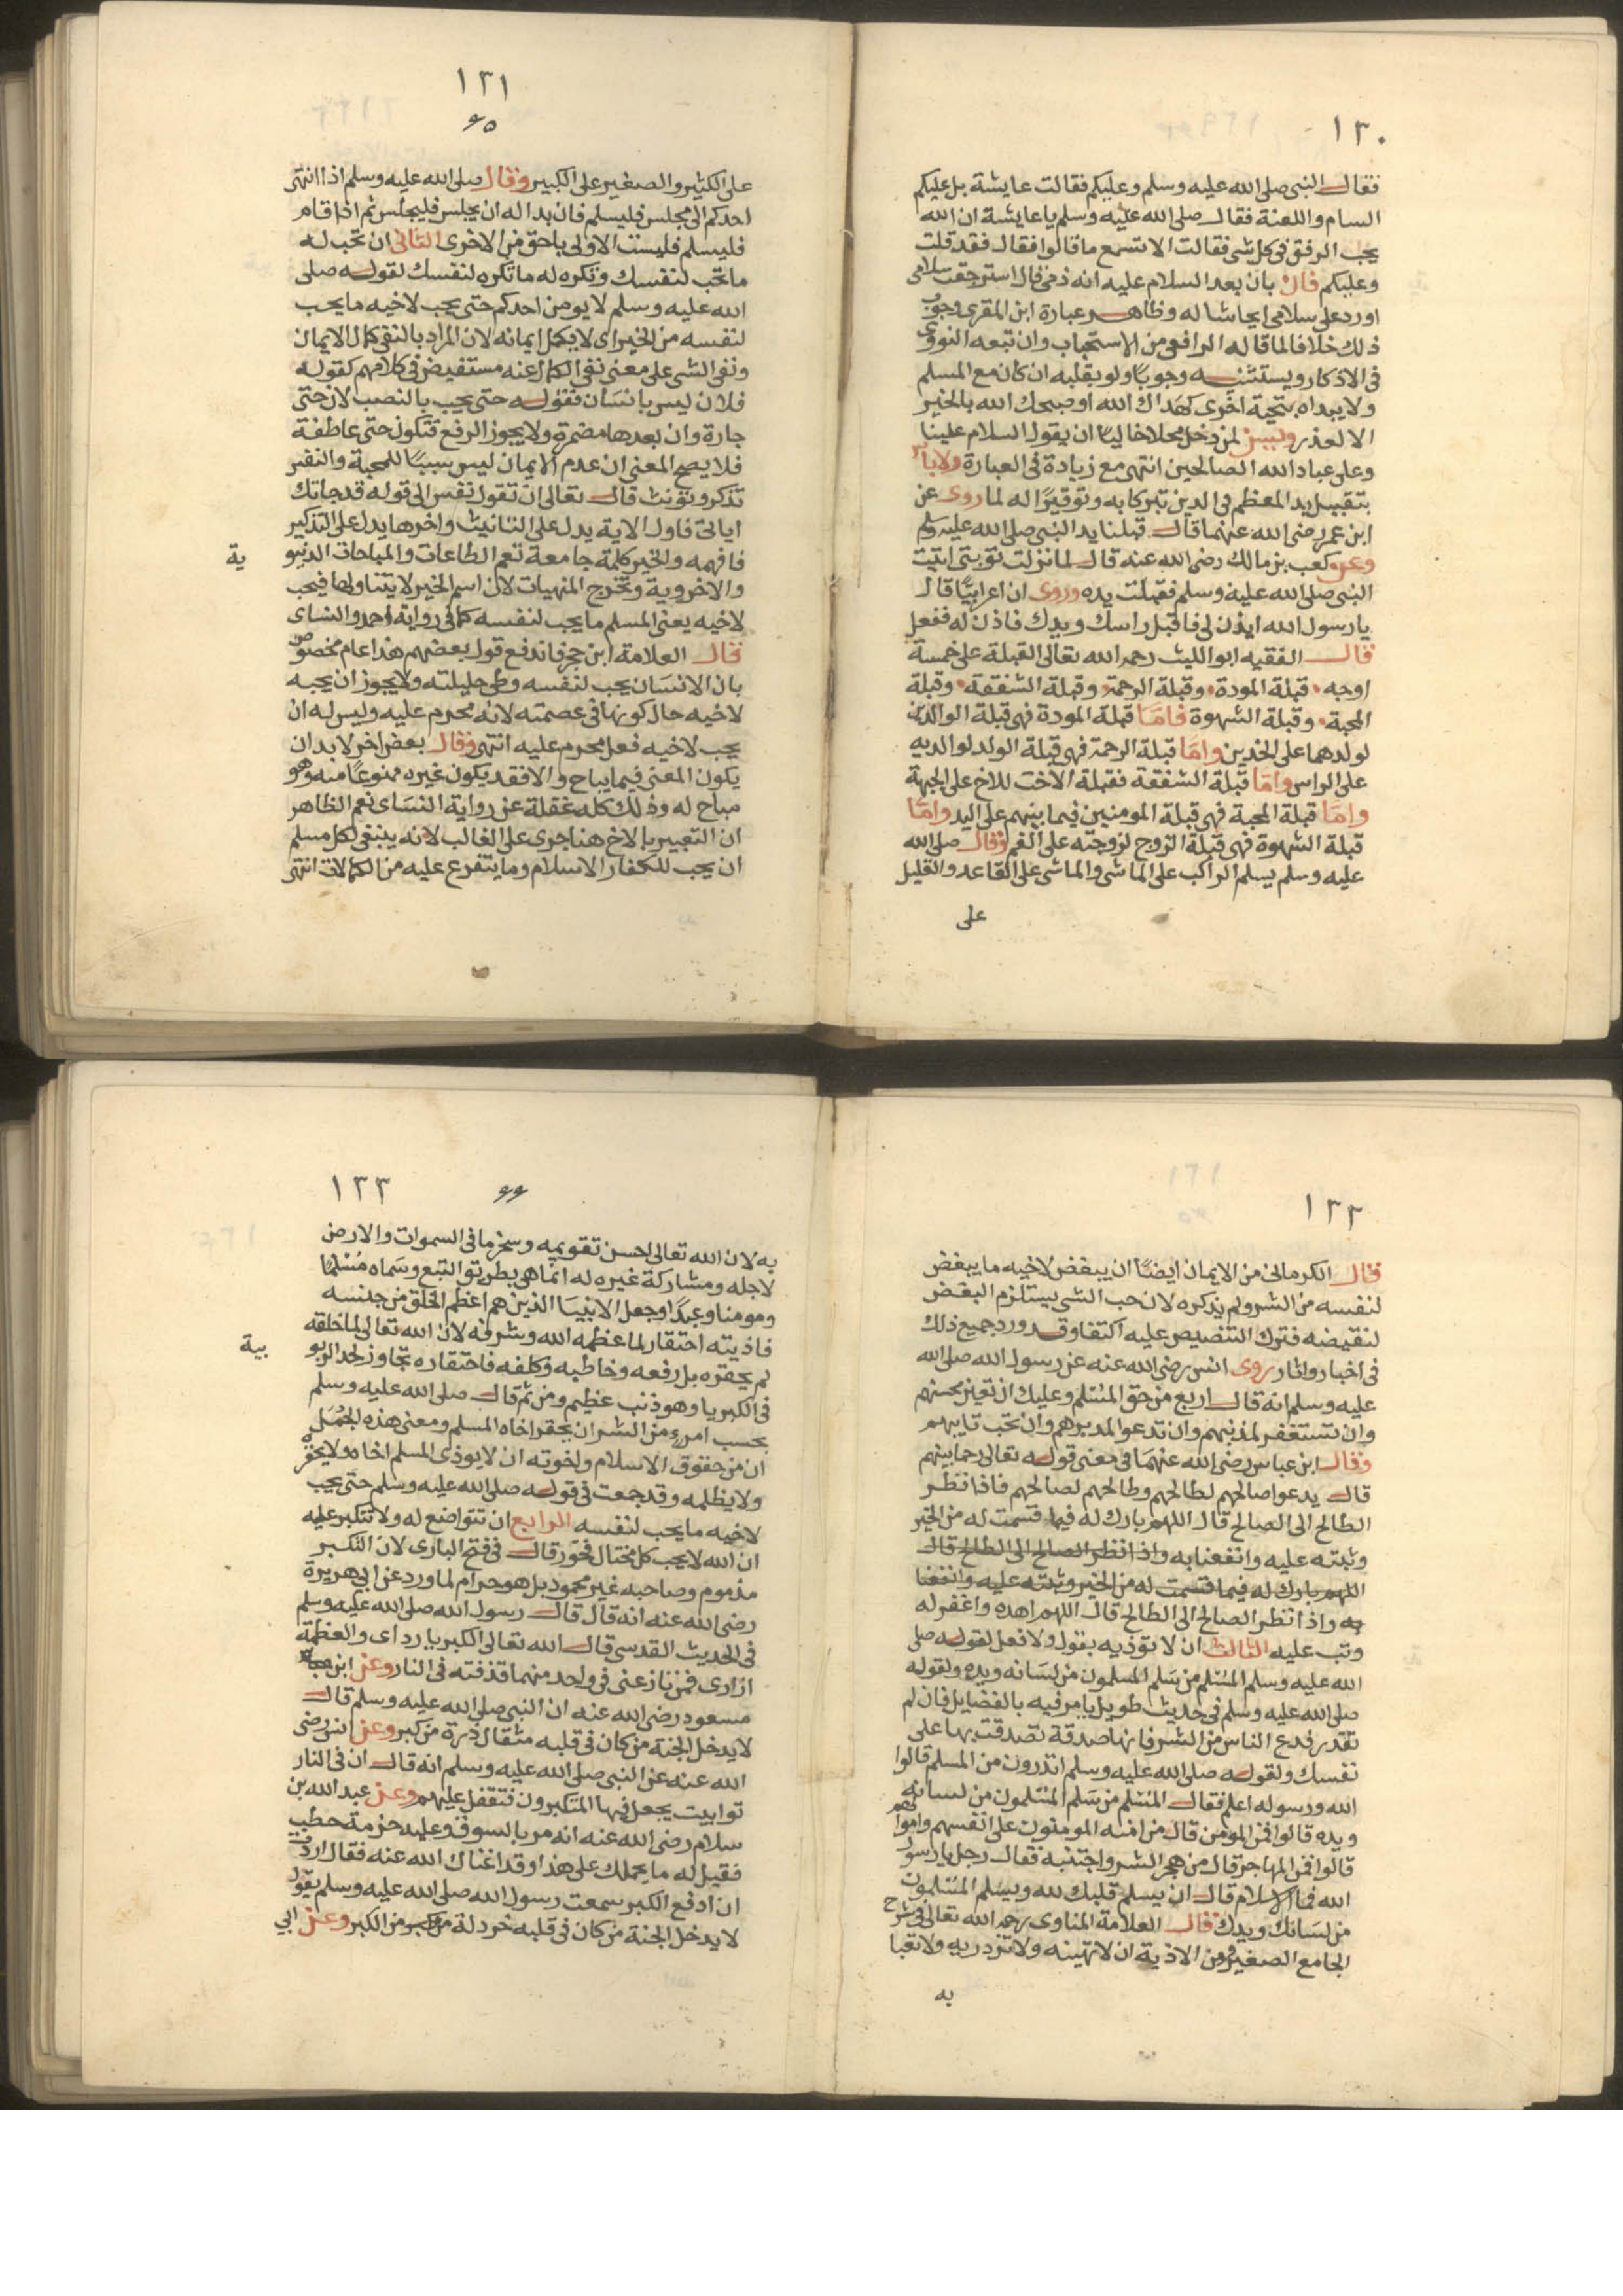 ١٣٠
فقال النبى صلى الله عليه وسلم وعليكم فقالت عايشة بل عليكم
السام واللعنة فقال صلى الله عليه وسلم يا عايشة ان الله
يحب الرفق فى كل شى فقالت الا تسمع ما قالوا فقال فقد قلت
وعليكم فان بان بعد السلام عليه انه ذمى قال استرجعت سلامى
او رد على سلامى ايحاشا له وظاهر عبارة ابن المقرى وجوب
ذلك خلافا لما قاله الرافعى من الاستحباب وان تبعه النووى
فى الاذكار ويستثنيه وجوبًا ولو بقلبه ان كان مع المسلم
ولا يبداه بتحية اخرى كهداك الله او صبحك الله بالخير
الا لعذر وليسن لمن دخل محلا خاليًا ان يقول السلام علينا
وعلى عباد الله الصالحين انتهى مع زيادة فى العبارة ولا باس
بتقبيل يد المعظم فى الدين تبركا به وتوقيرًا له لما روى عن
ابن عمر رضى الله عنهما قال قبلنا يد النبى صلى الله عليه وسلم
وعن كعب بن مالك رضى الله عنه قال لما نزلت توبتى اتيت
النبى صلى الله عليه وسلم فقبلت يده وروى ان اعرابيًا قال
يا رسول الله ايذن لى فاقبل راسك ويدك فاذن له ففعل
قال الفقيه ابو الليث رحمه الله تعالى القبلة على خمسة
اوجه قبلة المودة وقبلة الرحمة وقبلة الشفقة وقبلة
المحبة وقبلة الشهوة فامّا قبلة المودة فهى قبلة الوالدين
لولدهما على الخدين وامّا قبلة الرحمة فهى قبلة الولد لوالديه
على الراس وامّا قبلة الشفقة فقبلة الاخت للاخ على الجبهة
وامّا قبلة المحبة فهى قبلة المومنين فيما بينهم على اليد وامّا
قبلة الشهوة فهى قبلة الزوج لزوجته على الفم وقال صلى الله
عليه وسلم يسلم الراكب على الماشى والماشى على القاعد والقليل
على
١٣١
٦٥
على الكثير والصغير على الكبير وقال صلى الله عليه وسلم اذا انتهى
احدكم الى مجلس فليسلم فان بدا له ان يجلس فليجلس ثم اذا قام
فليسلم فليست الاولى باحق من الاخرى الثانى ان تحب له
ما تحب لنفسك وتكره له ما تكره لنفسك لقوله صلى
الله عليه وسلم لا يومن احدكم حتى يحب لاخيه ما يحب
لنفسه من الخير اى لا يكمل ايمانه لان المراد بالنفى كمال الايمان
ونفى الشى على معنى نفى الكمال عنه مستفيض فى كلامهم كقوله
فلان ليس بانسان فقوله حتى يحب بالنصب لان حتى
جارة وان بعدها مضمرة ولا يجوز الرفع فتكون حتى عاطفة
فلا يصح المعنى ان عدم الايمان ليس سببًا للمحبة والنفس
تذكر وتونث قال تعالى ان تقول نفس الى قوله قد جاتك
اياتى فاول الاية يدل على التانيث واخرها يدل على التذكير
فافهمه والخير كلمة جامعة تعم الطاعات والمباحات الدنيو
ية
والاخروية وتخرج المنهيات لان اسم الخير لا يتناولها فيحب
لاخيه يعنى المسلم ما يحب لنفسه كما فى رواية احمد والنساى
قال العلامة ابن حجر فاندفع قول بعضهم هذا عام مخصوص
بان الانسان يحب لنفسه وطى حليلته ولا يجوز ان يحبه
لاخيه حال كونها فى عصمته لانه محرم عليه وليس له ان
يحب لاخيه فعل محرم عليه انتهى وقال بعض اخر لا بد ان
يكون المعنى فيما يباح والا فقد يكون غيره ممنوعًا منه وهو
مباح له وذلك كله غفلة عن رواية النساى نعم الظاهر
ان التعبير بالاخ هنا جرى على الغالب لانه ينبغى لكل مسلم
ان يحب للكفار الاسلام وما يتفرع عليه من الكمالات انتهى
١٣٢
قال الكرمانى من الايمان ايضًا ان يبغض لاخيه ما يبغض
لنفسه من الشر ولم يذكره لان حب الشى يستلزم البغض
لنقيضه فترك التنصيص عليه اكتفا وقد ورد جميع ذلك
فى اخبار واثار روى انس رضى الله عنه عن رسول الله صلى الله
عليه وسلم انه قال اربع من حق المسلم وعليك ان تعين محسنهم
وان تستغفر لمذنبهم وان تدعو لمدبرهم وان تحب تايبهم
وقال ابن عباس رضى الله عنهما فى معنى قوله تعالى رحما بينهم
قال يدعوا صالحهم لطالحهم وطالحهم لصالحهم فاذا نظر
الطالح الى الصالح قال اللهم بارك له فيما قسمت له من الخير
وثبته عليه وانفعنا به واذا نظر الصالح الى الطالح قال
اللهم بارك له فيما قسمت له من الخير وثبته عليه وانفعنا
به واذا نظر الصالح الى الطالح قال اللهم اهده واغفر له
وتب عليه الثالث ان لا توذيه بقول ولا فعل لقوله صلى
الله عليه وسلم المسلم من سلم المسلمون من لسانه ويده ولقوله
صلى الله عليه وسلم فى حديث طويل يامر فيه بالفضايل فان لم
تقدر فدع الناس من الشر فانها صدقة تصدقت بها على
نفسك ولقوله صلى الله عليه وسلم اتدرون من المسلم قالوا
الله ورسوله اعلم فقال المسلم من سلم المسلمون من لسانه
ويده قالوا فمن المومن قال من امنه المومنون على انفسهم واموالهم
قالوا فمن المهاجر قال من هجر الشر واجتنبه فقال رجل يا رسول
الله فما الاسلام قال ان يسلم قلبك لله ويسلم المسلمون
من لسانك ويدك قال العلامة المناوى رحمه الله تعالى فى شرح
الجامع الصغير ومن الاذية ان لا تهينه ولا تزدريه ولا تعبا
به
٦٦
١٣٣
به لان الله تعالى احسن تقويمه وسخر ما فى السموات والارض
لاجله ومشاركة غيره له انما هى بطريق التبع وسماه مسلمًا
ومومنا وعبدًا وجعل الانبيا الذين هم اعظم الخلق من جنسه
فاذيته احتقار لما عظمه الله وشرفه لان الله تعالى لما خلقه
لم يحقره بل رفعه وخاطبه وكلفه فاحتقاره تجاوز لحد الربو
بية
فى الكبريا وهو ذنب عظيم ومن ثم قال صلى الله عليه وسلم
بحسب امرئ من الشر ان يحقر اخاه المسلم ومعنى هذه الجمل
ان من حقوق الاسلام واخوته ان لا يوذى المسلم اخاه ولا يحقره
ولا يظلمه وقد جمعت فى قوله صلى الله عليه وسلم حتى يحب
لاخيه ما يحب لنفسه الرابع ان تتواضع له ولا تتكبر عليه
ان الله لا يحب كل مختال فخور قال فى فتح البارى لان التكبر
مذموم وصاحبه غير محمود بل هو حرام لما ورد عن ابى هريرة
رضى الله عنه انه قال قال رسول الله صلى الله عليه وسلم
فى الحديث القدسى قال الله تعالى الكبريا رداى والعظمة
ازارى فمن نازعنى فى واحد منهما قذفته فى النار وعن ابن
مسعود رضى الله عنه ان النبى صلى الله عليه وسلم قال
لا يدخل الجنة من كان فى قلبه مثقال ذرة من كبر وعن انس رضى
الله عنه عن النبى صلى الله عليه وسلم انه قال ان فى النار
توابيت يجعل فيها المتكبرون فتقفل عليهم وعن عبد الله بن
سلام رضى الله عنه انه مر بالسوق وعليه حزمة حطب
فقيل له ما يحملك على هذا وقد اغناك الله عنه فقال اردت
ان ادفع الكبر سمعت رسول الله صلى الله عليه وسلم يقول
لا يدخل الجنة من كان فى قلبه خردلة من الكبر وعن ابي